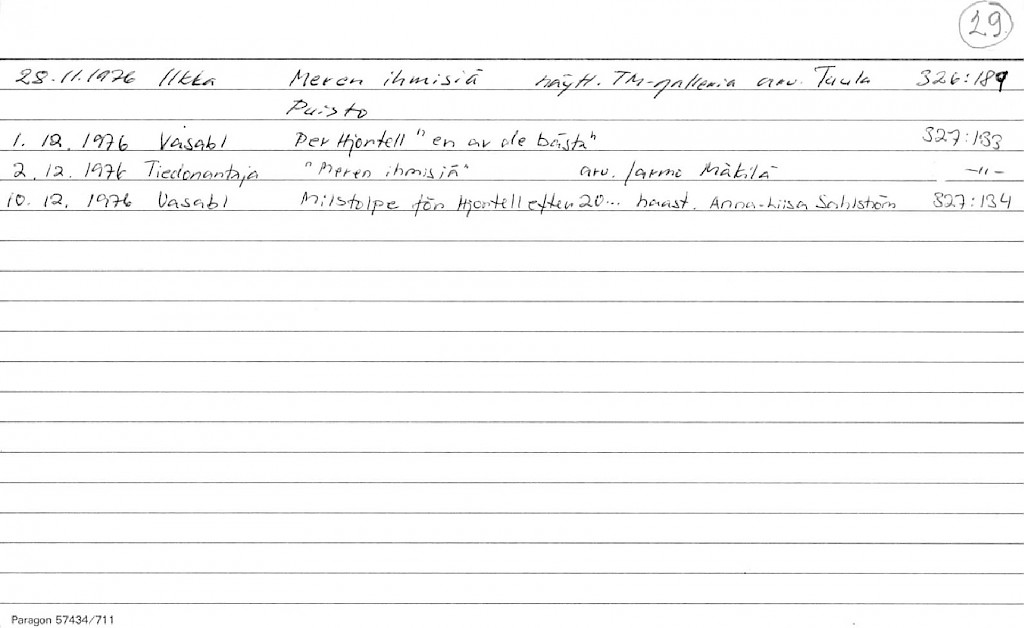 29
28.11.1976 Ilkka Meren ihmisiä näytt. TM-galleria arv. Tuula 326:189
Puisto
1. 12. 1976 Vasabl Per Hjortell "en av de bästa" 327:133
2. 12. 1976 Tiedonantaja "Meren ihmisiä" arv. Jarmo Mäkilä -"-
10. 12. 1976 Vasabl Milstolpe för Hjortell efter 20... haast. Anna-Liisa Sahlström 327:134
Paragon 57434/711